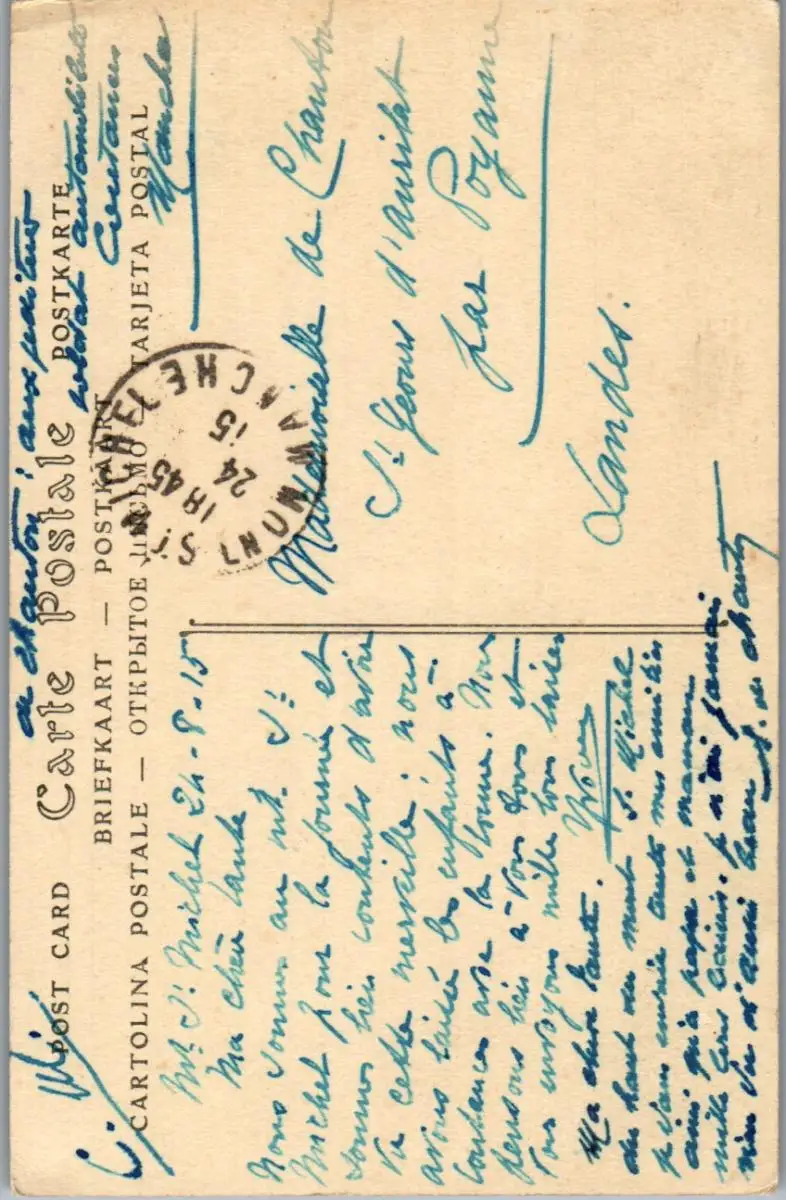 de Chanton
soldat automobiliste
Coutances
Manche
POST CARD Carte Postale POSTKARTE
BRIEFKAART — POSTKART
CARTOLINA POSTALE — ОТКРЫТОЕ ПИСЬМО — TARJETA POSTAL
MONT ST MICHEL MANCHE
18 45
24
15
Mt St Michel 24-8-15
Ma chère tante
Nous sommes au Mt St
Michel pour la journée et
sommes bien contents d'avoir
vu cette merveille; nous
avons laissé les enfants à
Coutances avec la bonne. Nous
pensons bien à vous tous et
vous envoyons mille tous
Ma chère tante.
du haut du mont St Michel
je vous envoie toutes mes amitiés
ainsi qu'à papa et maman
mille gros baisers. Je n'ai jamais
rien vu d'aussi beau
Mademoiselle de Chanton
St Geours d'Auribat
par Poyanne
Landes.